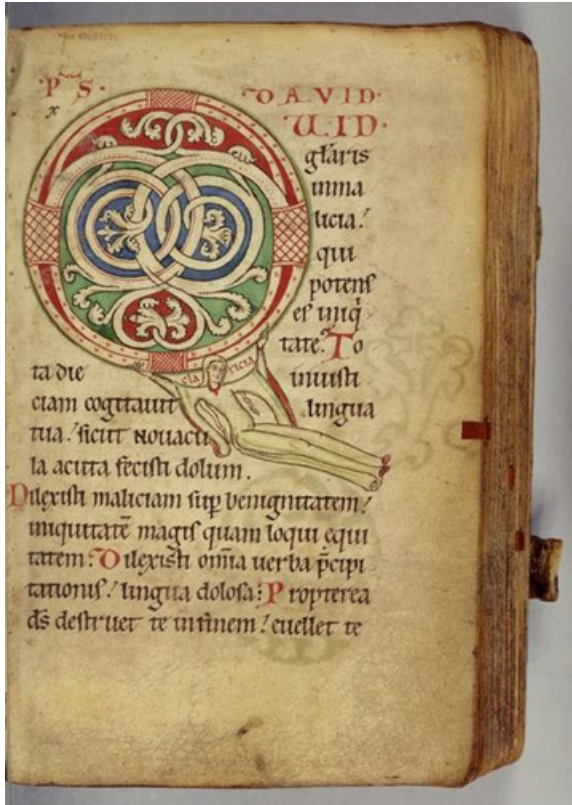 PS. DAVID.
UID.
gl̄aris
inma
licia!
qui
potens
es iniq
tate. To
CLARICIA
ta die iniusti
ciam cogitauit lingua
tua! sicut nouacu
la acuta fecisti dolum.
Dilexisti maliciam sup̱ benignitatem!
iniquitatē magis quam loqui equi
tatem: Dilexisti om̄ia uerba p̄cipi
tationis! lingua dolosa: Propterea
ds̄ destruet te infinem! euellet te